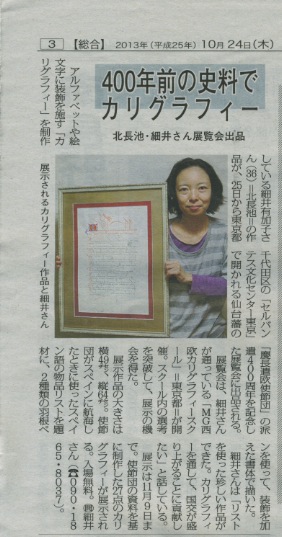 3 【総合】 2013年(平成25年) 10月24日(木)
400年前の史料で
カリグラフィー
北長池・細井さん展覧会出品
アルファベットや絵
文字に装飾を施す「カ
リグラフィー」を制作
している細井有加子さ
ん(36)=北長池=の作
品が、25日から東京都
千代田区の「セルバン
テス文化センター東京」
で開かれる仙台藩の
「慶長遣欧使節団」の派
遣400周年を記念し
た展覧会に出品される。
展覧会は、細井さん
が通っている「MG西
欧カリグラフィースク
ール」=東京都=が開
催。スクール内の選考
を突破して、展示の機
会を得た。
展示作品の大きさは
横49㌢、縦64㌢。使節
団がスペインに航海し
たときに使ったスペイ
ン語の物品リストを題
材に、2種類の羽根ペ
ンを使って、装飾を加
えた書体で描いた。
細井さんは「リスト
を使った珍しい作品が
できた。カリグラフィ
ーを通して、国交が盛
り上がることに貢献し
たい」と話している。
展示は11月9日ま
で。使節団の資料を基
に制作した27点のカリ
グラフィーが展示され
る。入場無料。㉄細井
さん(☎090・18
65・8037)。
展示されるカリグラフィー作品と細井さん